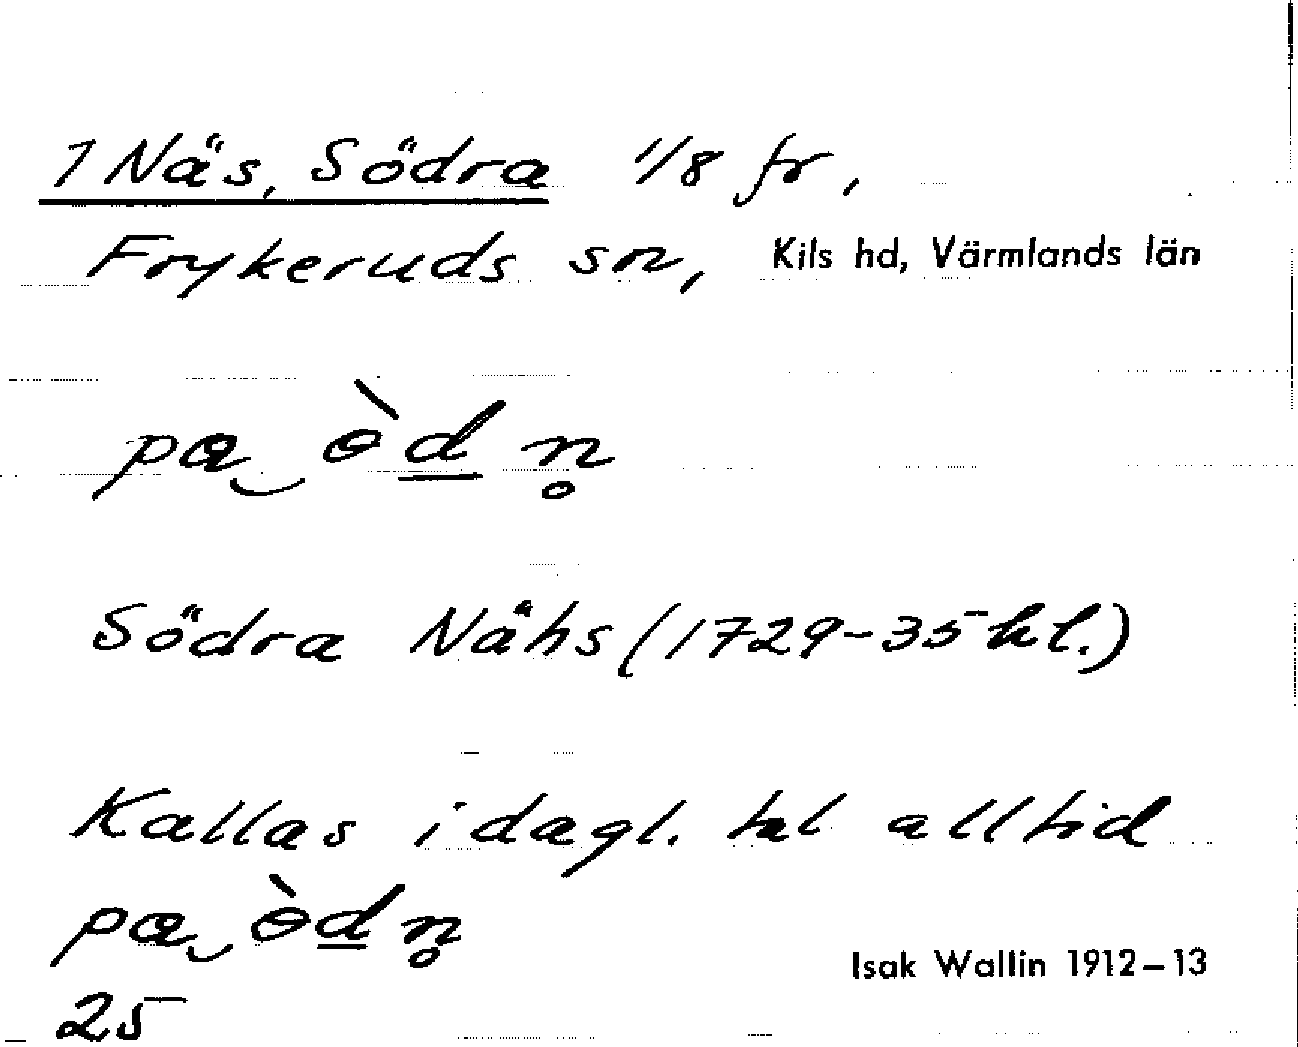 1 Näs, Södra 1/8 fr,
Frykeruds sn, Kils hd, Värmlands län
pa‿ ɵ̀d̲ n̥
Södra Nähs (1729-35 hl.)
Kallas i dagl. tal alltid
pa‿ ɵ̀d̲ n̥
Isak Wallin 1912–13
25